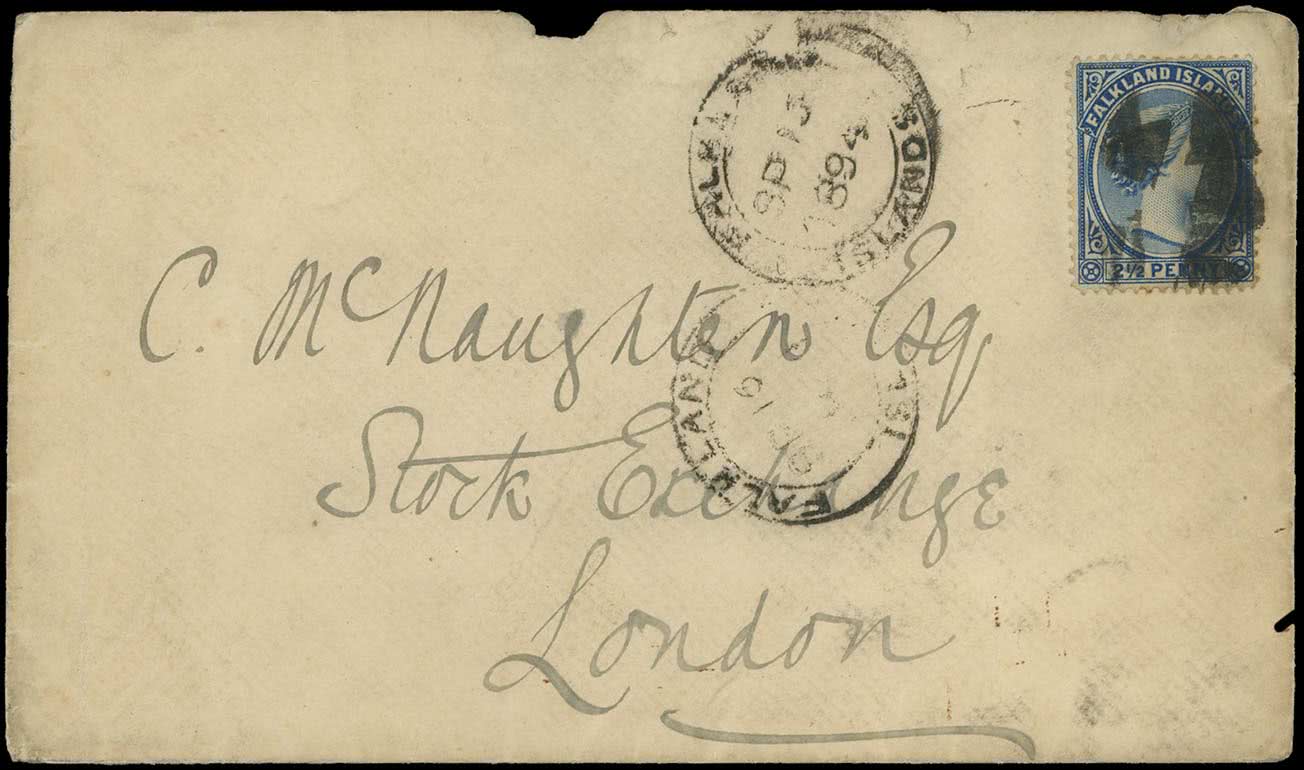 FALKLAND ISLANDS
2½ PENNY
FALKLAND ISLANDS
SP 13
1894
C. McNaughten Esq
Stock Exchange
London
FALKLAND ISL